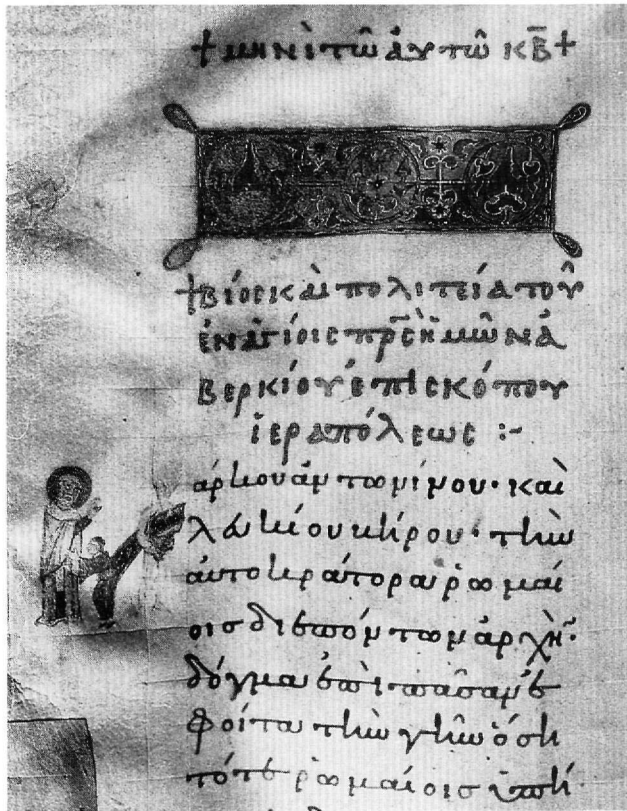 + μηνὶ τῶ ἀυτῶ κβ̅ +
+ βίος κὰι πολιτεία τοῦ
ἐν ἁγίοις πρ̅ς ἡμῶν ἀ
βερκίου ἐπισκόπου
ἱεραπόλεως :-
άρκου ἀντωνίνου· καὶ
λευκίου βήρου· τὴν
αὐτοκράτορα ῥωμαί
οις διεπόντων ἀρχὴν·
δόγμα ἐπὶ πᾶσαν ἐ
φοίτα τὴν γῆν ὅση
τότε ῥωμαίοις ὑπή